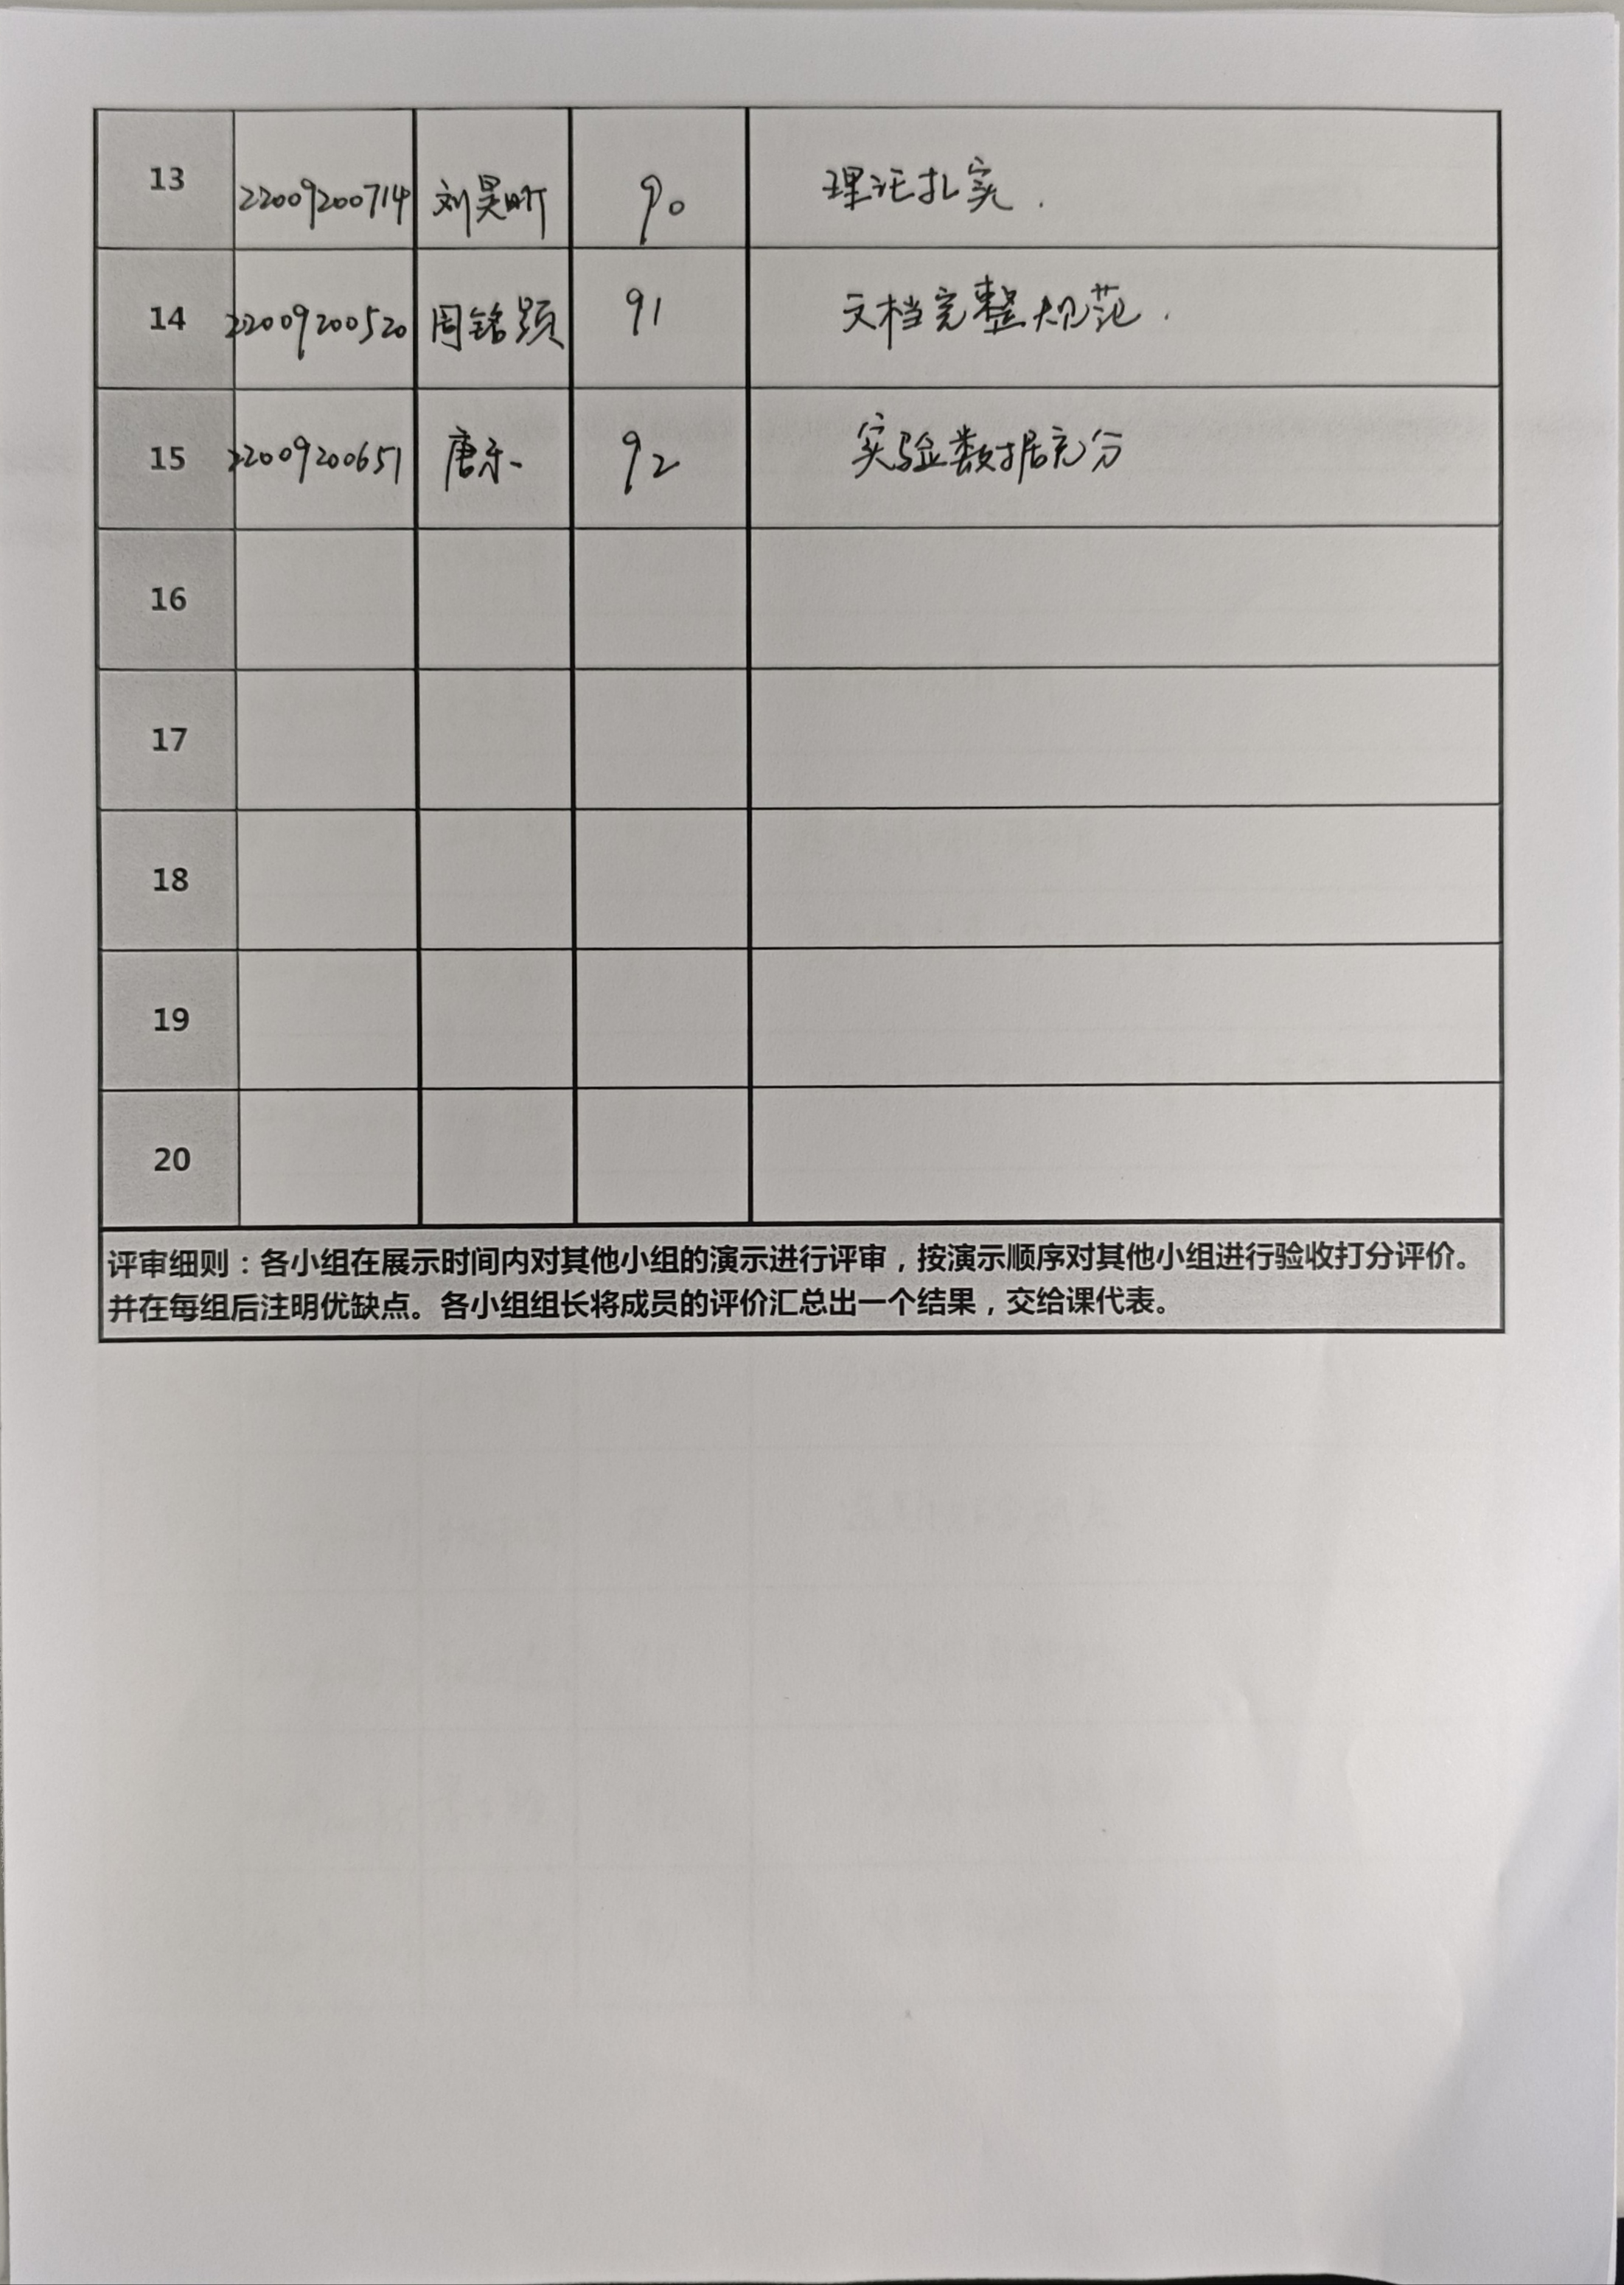 13 22009200714 刘昊昕 90 理论扎实.
14 22009200520 周铭颢 91 文档完整规范.
15 22009200651 唐乐一 92 实验数据充分
16
17
18
19
20
评审细则：各小组在展示时间内对其他小组的演示进行评审，按演示顺序对其他小组进行验收打分评价。
并在每组后注明优缺点。各小组组长将成员的评价汇总出一个结果，交给课代表。